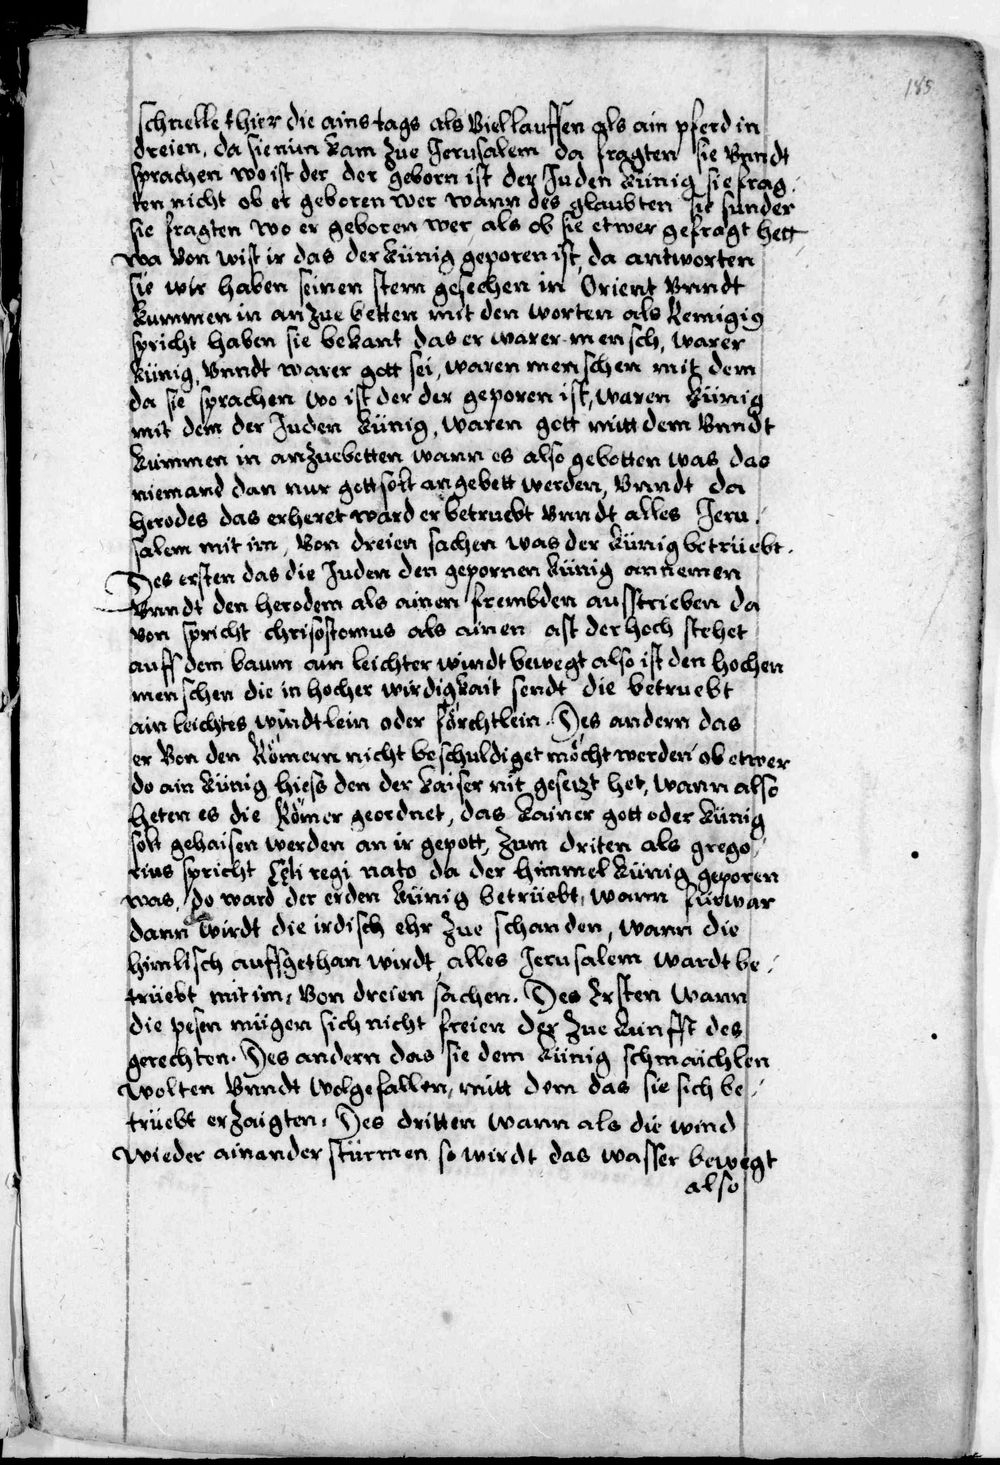 185
schnelle thier die ains tags als viel lauffen als ain pferd in
dreien, da sie nun kam zue Jerusalem da fragten sie vnndt
sprachen wo ist der der geborn ist der Juden künig sie frag,
ten nicht ob er geboren wer wann des glaubten sie sunder
sie fragten wo er geboren wer, als ob sie etwer gefragt hett
wa von wist ir das der künig geporen ist, da antworten
sie wir haben seinen stern gesechen in Orient vnndt
kummen in anzue betten mit den worten als Remigius
spricht haben sie bekant das er warer mensch, warer
künig, vnndt warer gott sei, waren menschen mit dem
da sie sprachen wo ist der der geporen ist, waren künig
mit dem der Juden künig, waren gott mitt dem vnndt
kummen in anzuebetten wann es also gebotten was das
niemand dan nur gott solt angebett werden, vnndt da
herodes das erheret ward er betruebt vnndt alles Jeru,
salem mit im, von dreien sachen was der künig betrüebt.
Des ersten das die Juden den gepornen künig annemen
vnndt den herodem als ainen frembden ausstrieben da
von spricht chrisostomus als ainen ast der hoch stehet
auff dem baum ain leichter windt bewegt also ist den hochen
menschen die in hocher wirdigkait sendt die betruebt
ain leichtes windtlein oder förchtlein. Des andern das
er von den Römern nicht beschuldiget möcht werden ob etwer
do ain künig hiess den der kaiser nit gesetzt het, wann also
heten es die Römer geordnet, das kainer gott oder künig
solt gehaisen werden an ir gepott, zum driten als grego,
rius spricht Cęli regi nato da der himmel künig geporen
was, do ward der erden künig betrüebt, wann fürwar
dann wirdt die irdisch ehr zue schanden, wann die
himlisch auffgethan wirdt, alles Jerusalem wardt be,
trüebt mit im, von dreien sachen. Des Ersten wann
die pesen mügen sich nicht freien der zue kunfft des
gerechten. Des andern das sie dem künig schmaichlen
wolten vnndt wolgefallen, mitt dem das sie sich be,
trüebt erzaigten, Des dritten wann als die wind
wieder ainander stürmen so wirdt das wasser bewegt
also